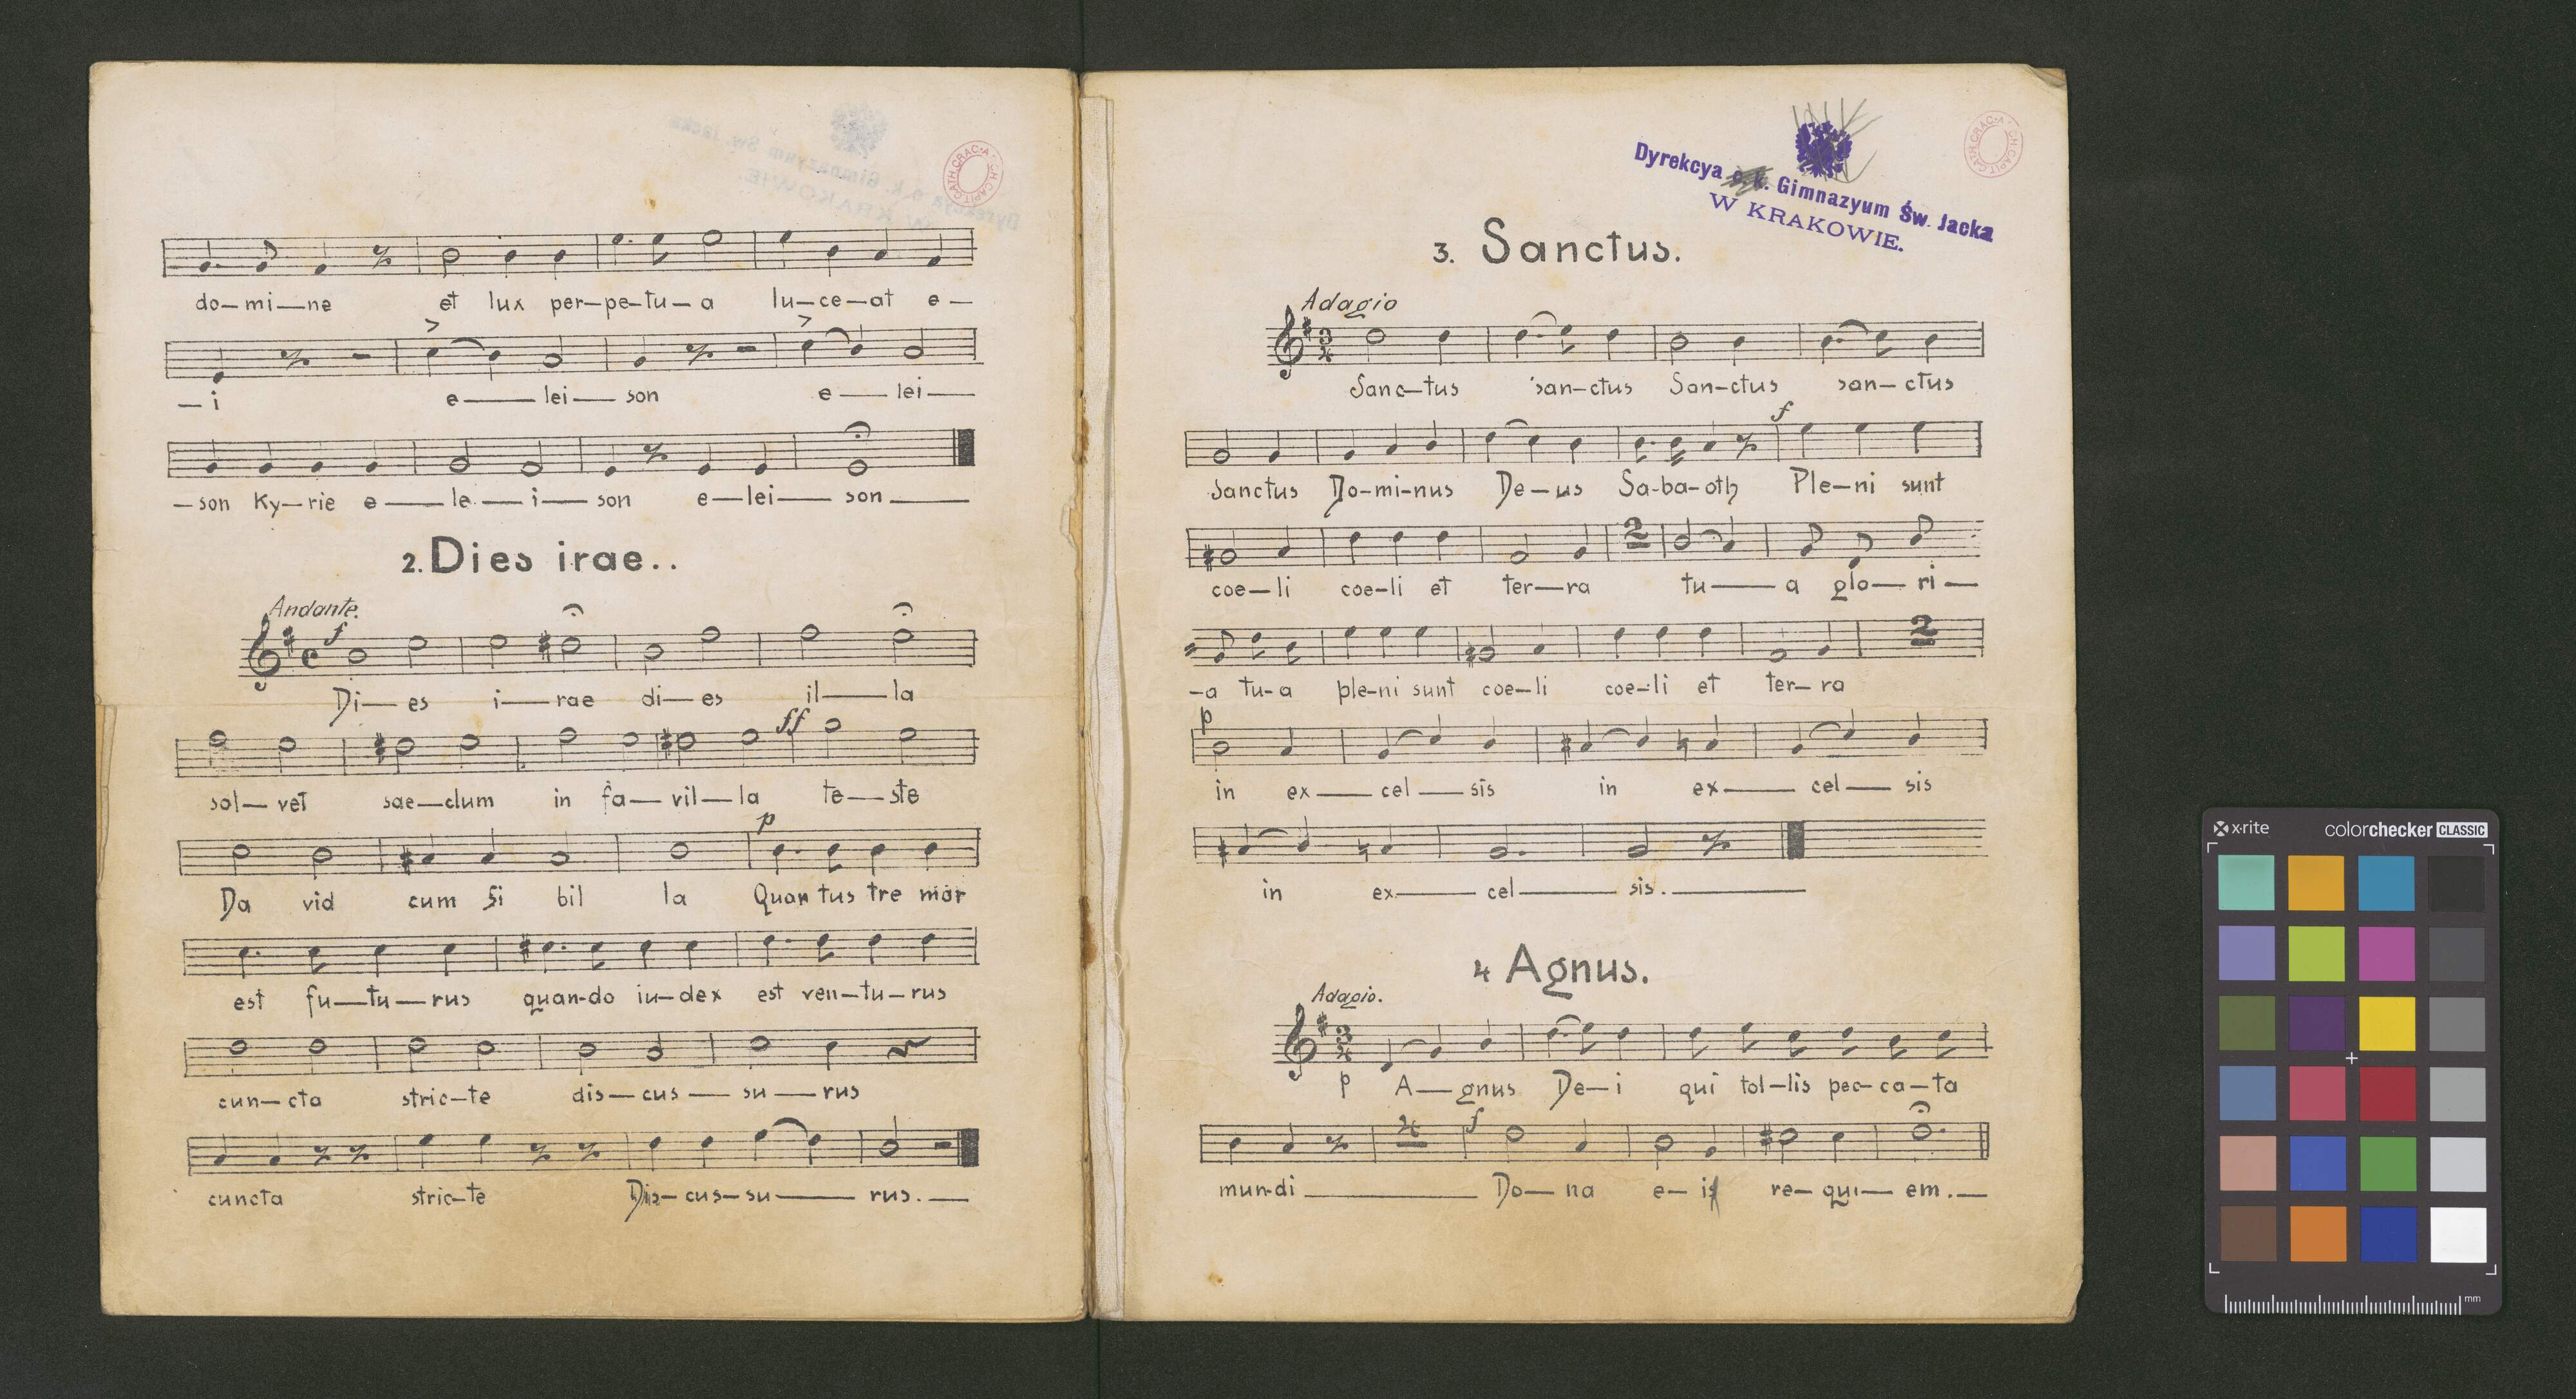 CATH. CRAC. A CH. CAPIT.
do—mi—ne et lux per—pe—tu—a lu—ce—at e—
—i e—lei—son e—lei—
—son Ky—rie e—le—i—son e—lei—son—
2. Dies irae..
Andante.
f
Di—es i—rae di—es il—la
ff
sol—vet sae—clum in fa—vil—la te—ste
p
Da vid cum Si bil la Quan tus tre mor
est fu—tu—rus quan-do iu—dex est ven—tu—rus
cun—cta stric—te dis—cus—su—rus
cuncta stric—te Dis—cus—su—rus.—
Dyrekcya c. k. Gimnazyum Św. Jacka
W KRAKOWIE.
CATH. CRAC. A CH. CAPIT.
3. Sanctus.
Adagio
3/4
Sanc—tus san—ctus San—ctus san—ctus
f
Sanctus Do-mi-nus De—us Sa-ba-oth Ple—ni sunt
2
coe—li coe—li et ter—ra tu—a glo—ri—
2
-a tu-a ple-ni sunt coe—li coe—li et ter—ra
p
in ex—cel—sis in ex—cel—sis
in ex—cel—sis.—
4 Agnus.
Adagio.
3/4
p A—gnus De—i qui tol—lis pec—ca—ta
4 f
mun-di— Do—na e—is re—qui—em.—
x-rite colorchecker CLASSIC
mm